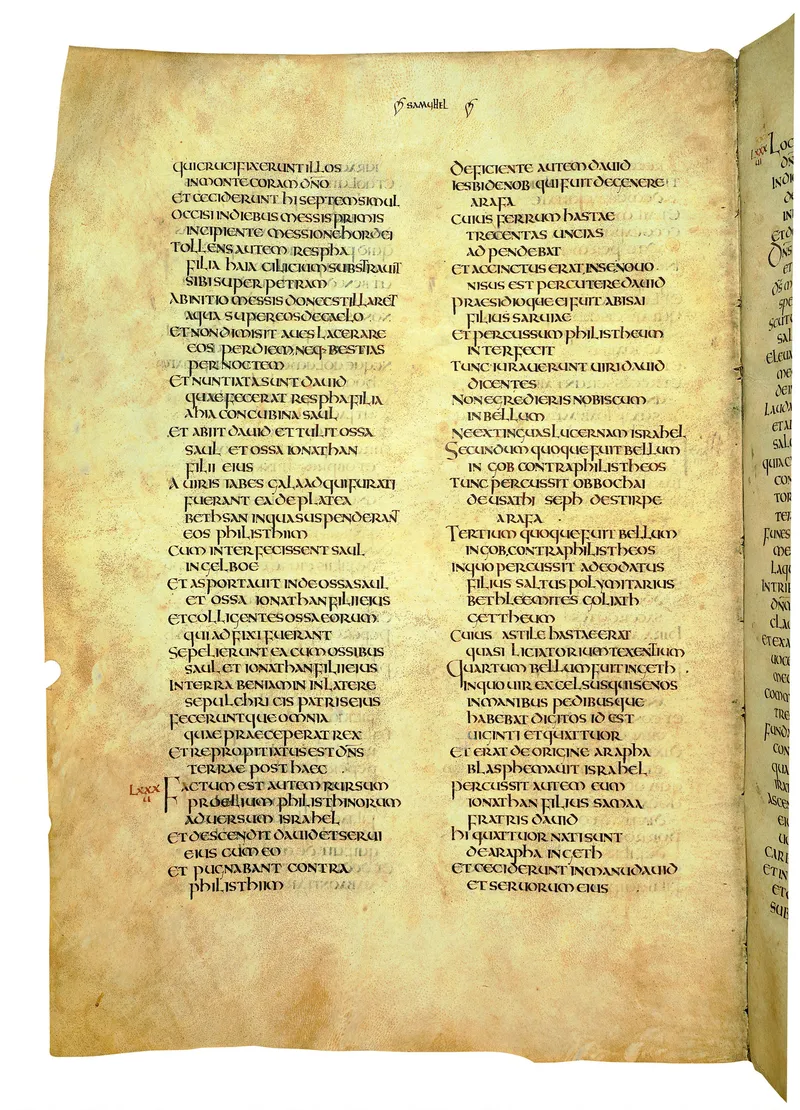 SAMUHEL
QUI CRUCIFIXERUNT ILLOS
IN MONTE CORAM DNO
ET CECIDERUNT HI SEPTEM SIMUL
OCCISI IN DIEBUS MESSIS PRIMIS
INCIPIENTE MESSIONE HORDEI
TOLLENS AUTEM RESPHA
FILIA HAIA CILICIUM SUBSTRAUIT
SIBI SUPER PETRAM
AB INITIO MESSIS DONEC STILLARET
AQUA SUPER EOS DE CAELO
ET NON DIMISIT AUES LACERARE
EOS PER DIEM NEQ· BESTIAS
PER NOCTEM
ET NUNTIATA SUNT DAUID
QUAE FECERAT RESPHA FILIA
AHIA CONCUBINA SAUL
ET ABIIT DAUID ET TULIT OSSA
SAUL ET OSSA IONATHAN
FILII EIUS
A UIRIS IABES GALAAD QUI FURATI
FUERANT EA DE PLATEA
BETHSAN IN QUA SUSPENDERANT
EOS PHILISTHIIM
CUM INTERFECISSENT SAUL
IN GELBOE
ET ASPORTAUIT INDE OSSA SAUL
ET OSSA IONATHAN FILII EIUS
ET COLLIGENTES OSSA EORUM
QUI ADFIXI FUERANT
SEPELIERUNT EA CUM OSSIBUS
SAUL ET IONATHAN FILII EIUS
IN TERRA BENIAMIN IN LATERE
SEPULCHRI CIS PATRIS EIUS
FECERUNTQUE OMNIA
QUAE PRAECEPERAT REX
ET REPROPITIATUS EST DNS
TERRAE POST HAEC
LXXX II FACTUM EST AUTEM RURSUM
PROELIUM PHILISTHINORUM
ADUERSUM ISRAHEL
ET DESCENDIT DAUID ET SERUI
EIUS CUM EO
ET PUGNABANT CONTRA
PHILISTHIIM
DEFICIENTE AUTEM DAUID
IESBIDENOB QUI FUIT DE GENERE
ARAFA
CUIUS FERRUM HASTAE
TRECENTAS UNCIAS
ADPENDEBAT
ET ACCINCTUS ERAT ENSE NOUO
NISUS EST PERCUTERE DAUID
PRAESIDIOQUE EI FUIT ABISAI
FILIUS SARUIAE
ET PERCUSSUM PHILISTHEUM
INTERFECIT
TUNC IURAUERUNT UIRI DAUID
DICENTES
NON EGREDIERIS NOBISCUM
IN BELLUM
NE EXTINGUAS LUCERNAM ISRAHEL
SECUNDUM QUOQUE FUIT BELLUM
IN GOB CONTRA PHILISTHEOS
TUNC PERCUSSIT OBBOCHAI
DE USATHI SEPH DE STIRPE
ARAFA
TERTIUM QUOQUE FUIT BELLUM
IN GOB CONTRA PHILISTHEOS
IN QUO PERCUSSIT ADEODATUS
FILIUS SALTUS POLYMITARIUS
BETHLEEMITES GOLIATH
GETTHEUM
CUIUS ASTILE HASTAE ERAT
QUASI LICIATORIUM TEXENTIUM
QUARTUM BELLUM FUIT IN GETH
IN QUO UIR EXCELSUS QUI SENOS
IN MANIBUS PEDIBUSQUE
HABEBAT DIGITOS ID EST
UIGINTI ET QUATTUOR
ET ERAT DE ORIGINE ARAPHA
BLASPHEMAUIT ISRAHEL
PERCUSSIT AUTEM EUM
IONATHAN FILIUS SAMAA
FRATRIS DAUID
HI QUATTUOR NATI SUNT
DE ARAPHA IN GETH
ET CECIDERUNT IN MANU DAUID
ET SERUORUM EIUS